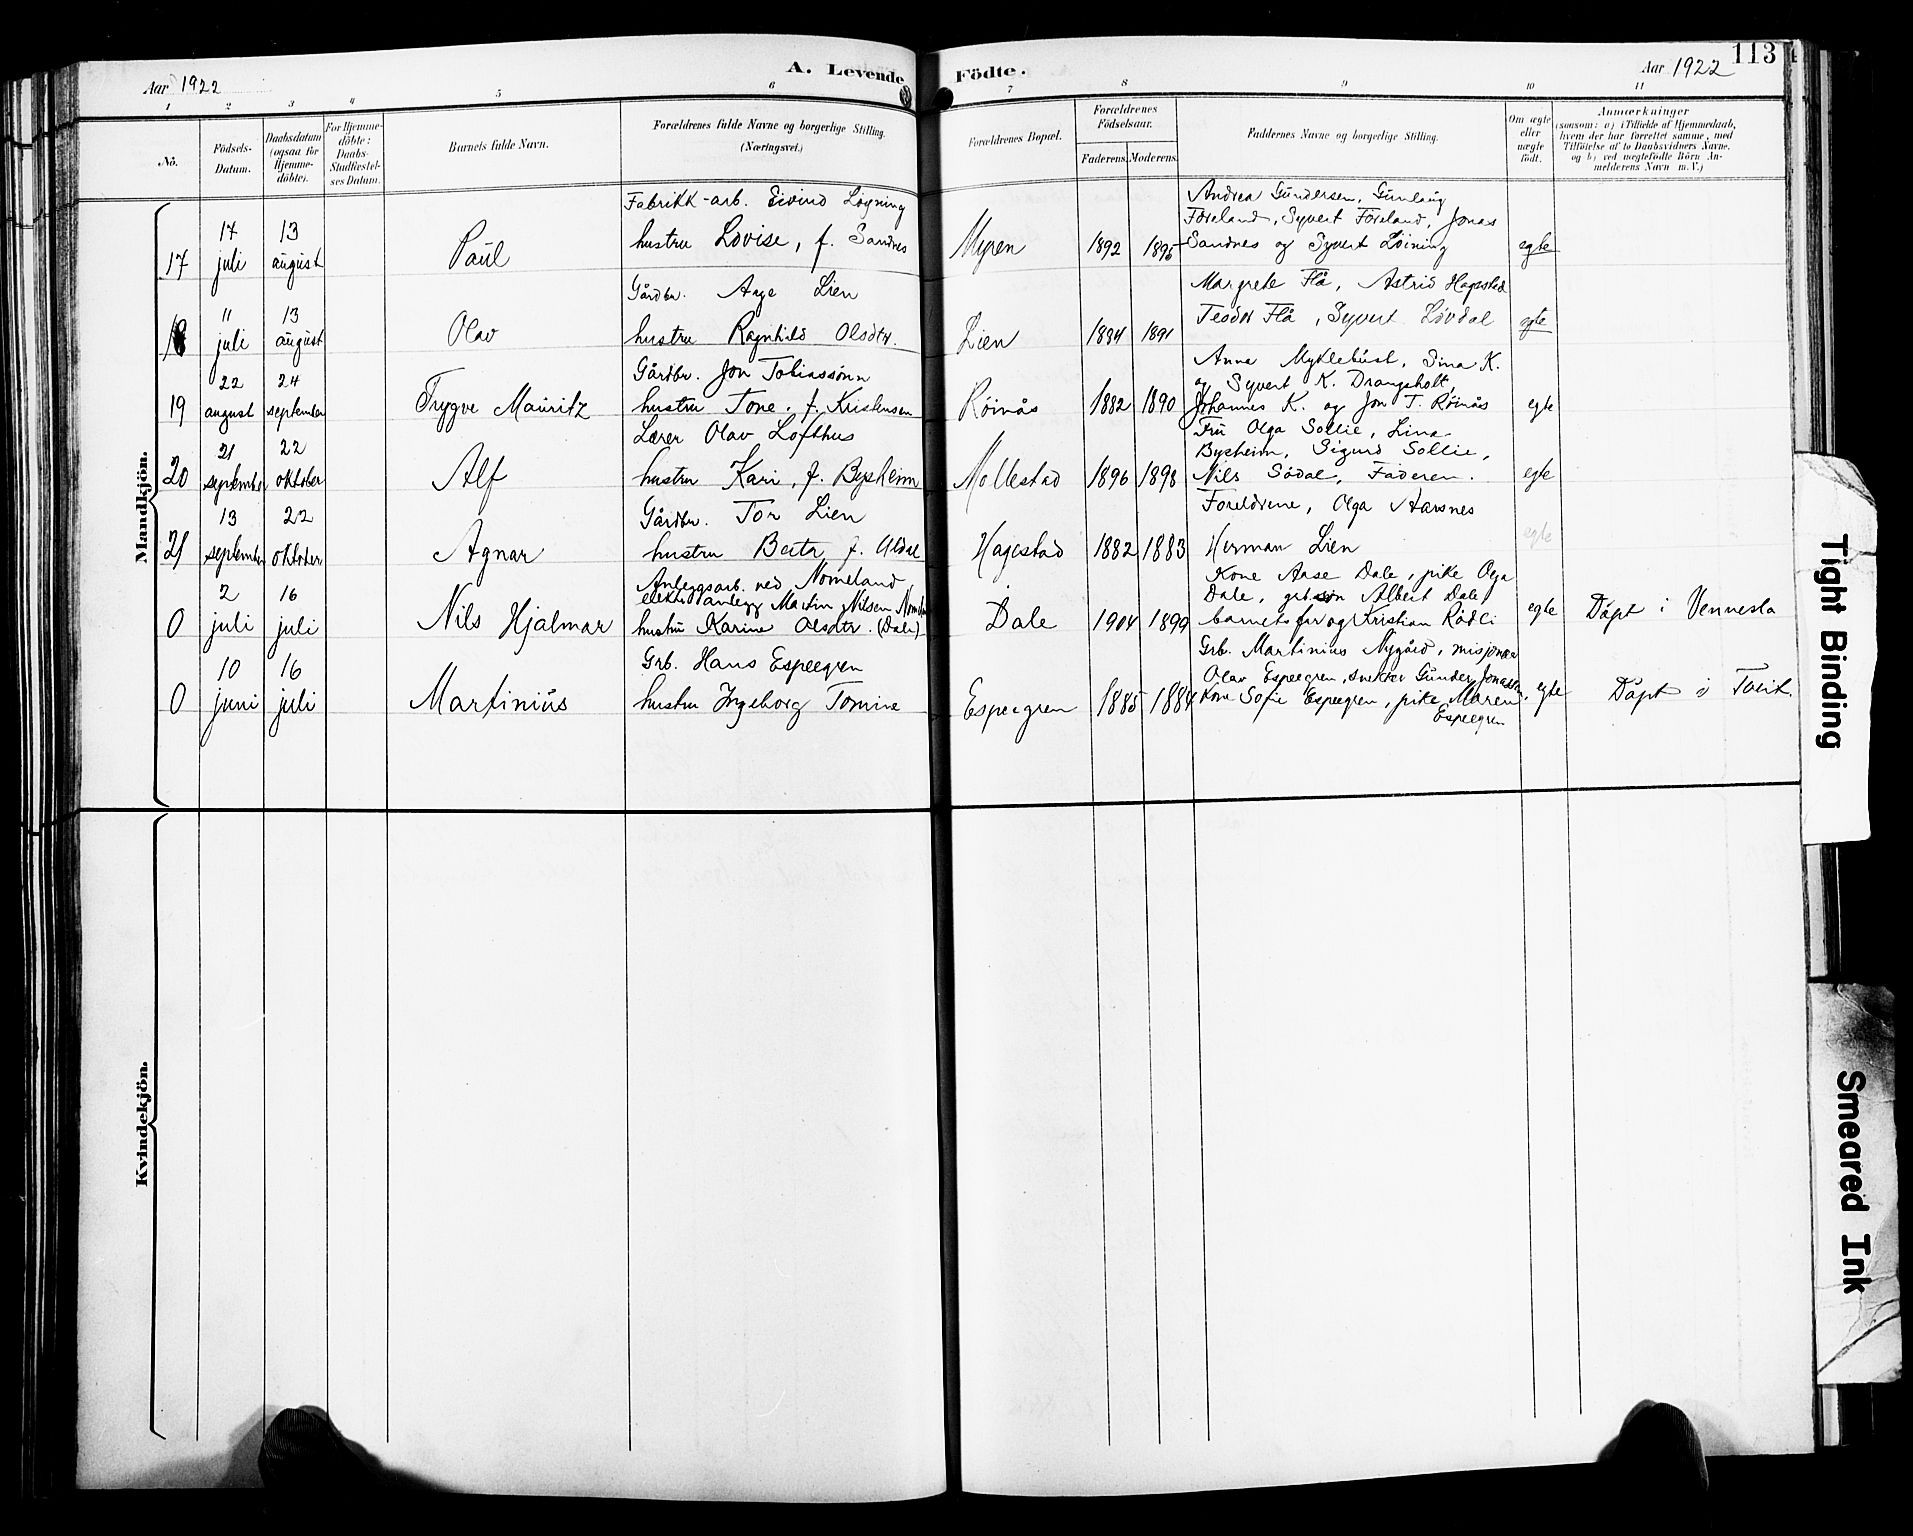 Aar 1922
A. Levende Födte.
Aar 1922
113
1 2 3 4 5 6 7 8 9 10 11
No.
Födsels-Datum.
Daabsdatum (ogsaa for Hjemme-döbte).
For Hjemme-döbte: Daabs-Stadfæstel-ses Datum.
Barnets fulde Navn.
Forældrenes fulde Navne og borgerlige Stilling.
(Næringsvei.)
Forældrenes Bopæl.
Forældrenes Födselsaar.
Faderens. Moderens.
Faddernes Navne og borgerlige Stilling.
Om ægte eller uægte födt.
Anmærkninger
(saasom: a) i Tilfælde af Hjemmedaab,
hvem der har forrettet samme, med
Tilföielse af to Daabsvidners Navne,
og b) ved uægtefödte Börn An-
melderens Navn m. V.)
Mandkjön.
17
17 juli
13 august
Paul
Fabrikk-arb. Eivind Løgning
hustru Lovise, f. Sandnes
Myren
1892
1895
Andrea Gundersen, Gunlaug
Føreland, Syvert Føreland, Jonas
Sandnes og Syvert Løining
egte
18
11 juli
13 august
Olav
Gårdbr. Aage Lien
hustru Ragnhild Olsdtr.
Lien
1884
1891
Margrete Flå, Astrid Hagestad
Teodor Flå, Syvert Løvdal
egte
19
22 august
24 september
Trygve Mauritz
Gårdbr. Jon Tobiassønn
hustru Tone. f. Kristensen
Røinås
1882
1890
Anna Myklebust, Sina K.
og Syvert K. Drangsholt,
Johannes K. og Jon T. Røinås
egte
20
21 september
22 oktober
Alf
Lærer Olav Lofthus
hustru Kari, f. Bysheim
Mollestad
1896
1898
Fru Olga Sollie, Lina
Bysheim, Sigurd Sollie,
Nils Sødal, Faderen.
egte
21
13 september
22 oktober
Agnar
Gårdbr. Tor Lien
hustru Berta f. Uldal
Hagestad
1882
1883
Foreldrene, Olga Aarsnes
Herman Lien
egte
0
2 juli
16 juli
Nils Hjalmar
Anleggsarb. ved Nomeland
elektr. anlegg Martin Nilsen
hustru Karine Olsdtr. (Dale)
Dale
1904
1899
Kone Aase Dale, pike Olga
Dale, grbsøn Albert Dale,
barnets far og Kristian Rødli
egte
Døpt i Vennesla
0
10 juni
16 juli
Martinius
Grb. Hans Espegren
hustru Ingeborg Tomine
Espegren
1885
1884
Grb. Martinius Nygård, misjonær
Olav Espegren, snekker Gunder Jonassen,
Kone Sofie Espegren, pike Maren
Espegren
egte
Døpt i
Kvindekjön.
Tight Binding
Smeared Ink